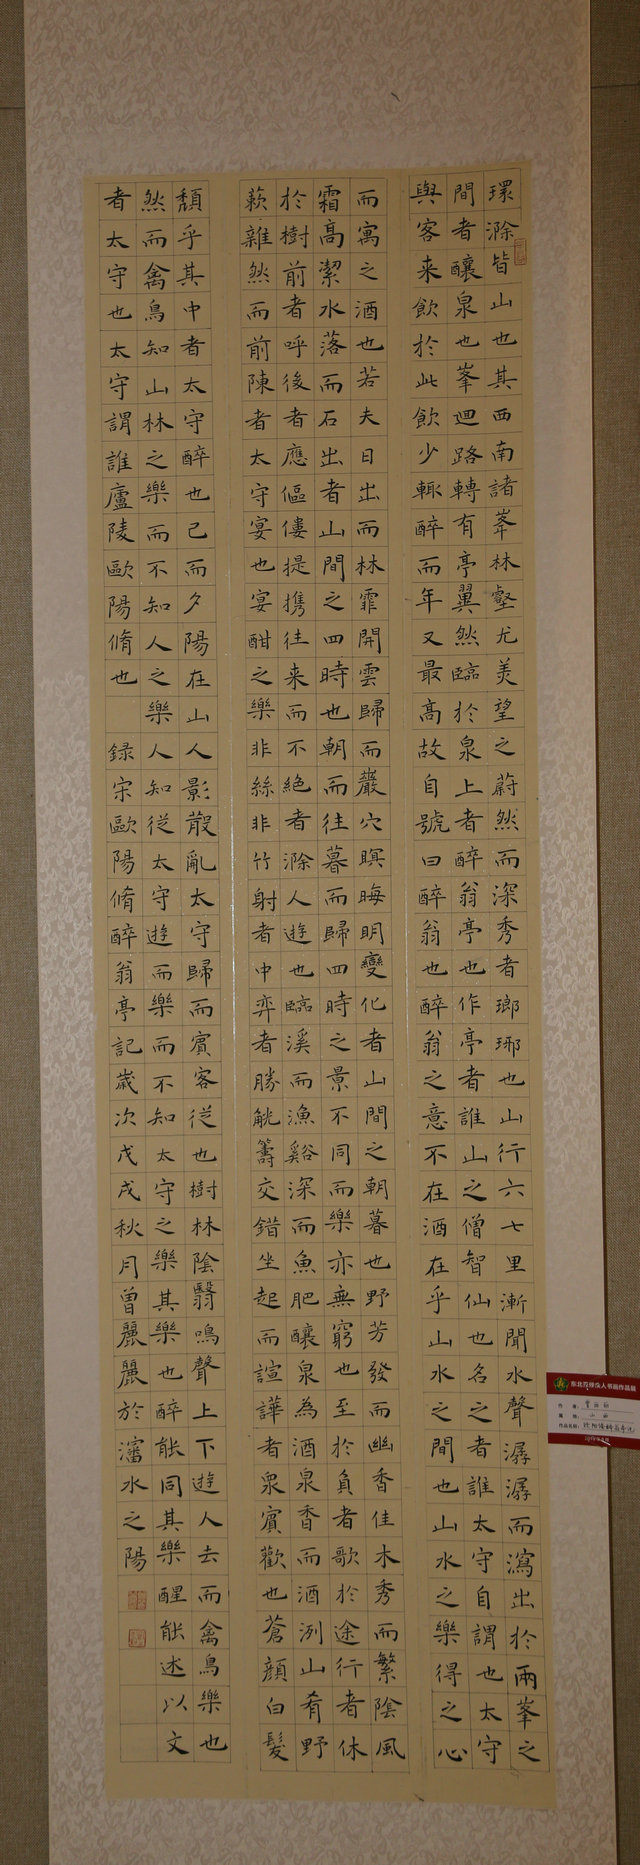 環滁皆山也其西南諸峯林壑尤美望之蔚然而深秀者瑯琊也山行六七里漸聞水聲潺潺而瀉出於兩峯之
間者釀泉也峯迴路轉有亭翼然臨於泉上者醉翁亭也作亭者誰山之僧智仙也名之者誰太守自謂也太守
與客来飲於此飲少輒醉而年又最高故自號曰醉翁也醉翁之意不在酒在乎山水之間也山水之樂得之心
而寓之酒也若夫日出而林霏開雲歸而巖穴暝晦明變化者山間之朝暮也野芳發而幽香佳木秀而繁陰風
霜高潔水落而石出者山間之四時也朝而往暮而歸四時之景不同而樂亦無窮也至於負者歌於途行者休
於樹前者呼後者應傴僂提携往来而不絕者滁人遊也臨溪而漁谿深而魚肥釀泉為酒泉香而酒洌山肴野
蔌雜然而前陳者太守宴也宴酣之樂非絲非竹射者中弈者勝觥籌交錯坐起而諠譁者衆賓歡也蒼顏白髮
頹乎其中者太守醉也已而夕陽在山人影散亂太守歸而賓客從也樹林陰翳鳴聲上下遊人去而禽鳥樂也
然而禽鳥知山林之樂而不知人之樂人知從太守遊而樂而不知太守之樂其樂也醉能同其樂醒能述以文
者太守也太守謂誰廬陵歐陽脩也
録宋歐陽脩醉翁亭記歲次戊戌秋月曾麗麗於瀋水之陽
东北双师成人书画作品展
作 者：
作品名称：